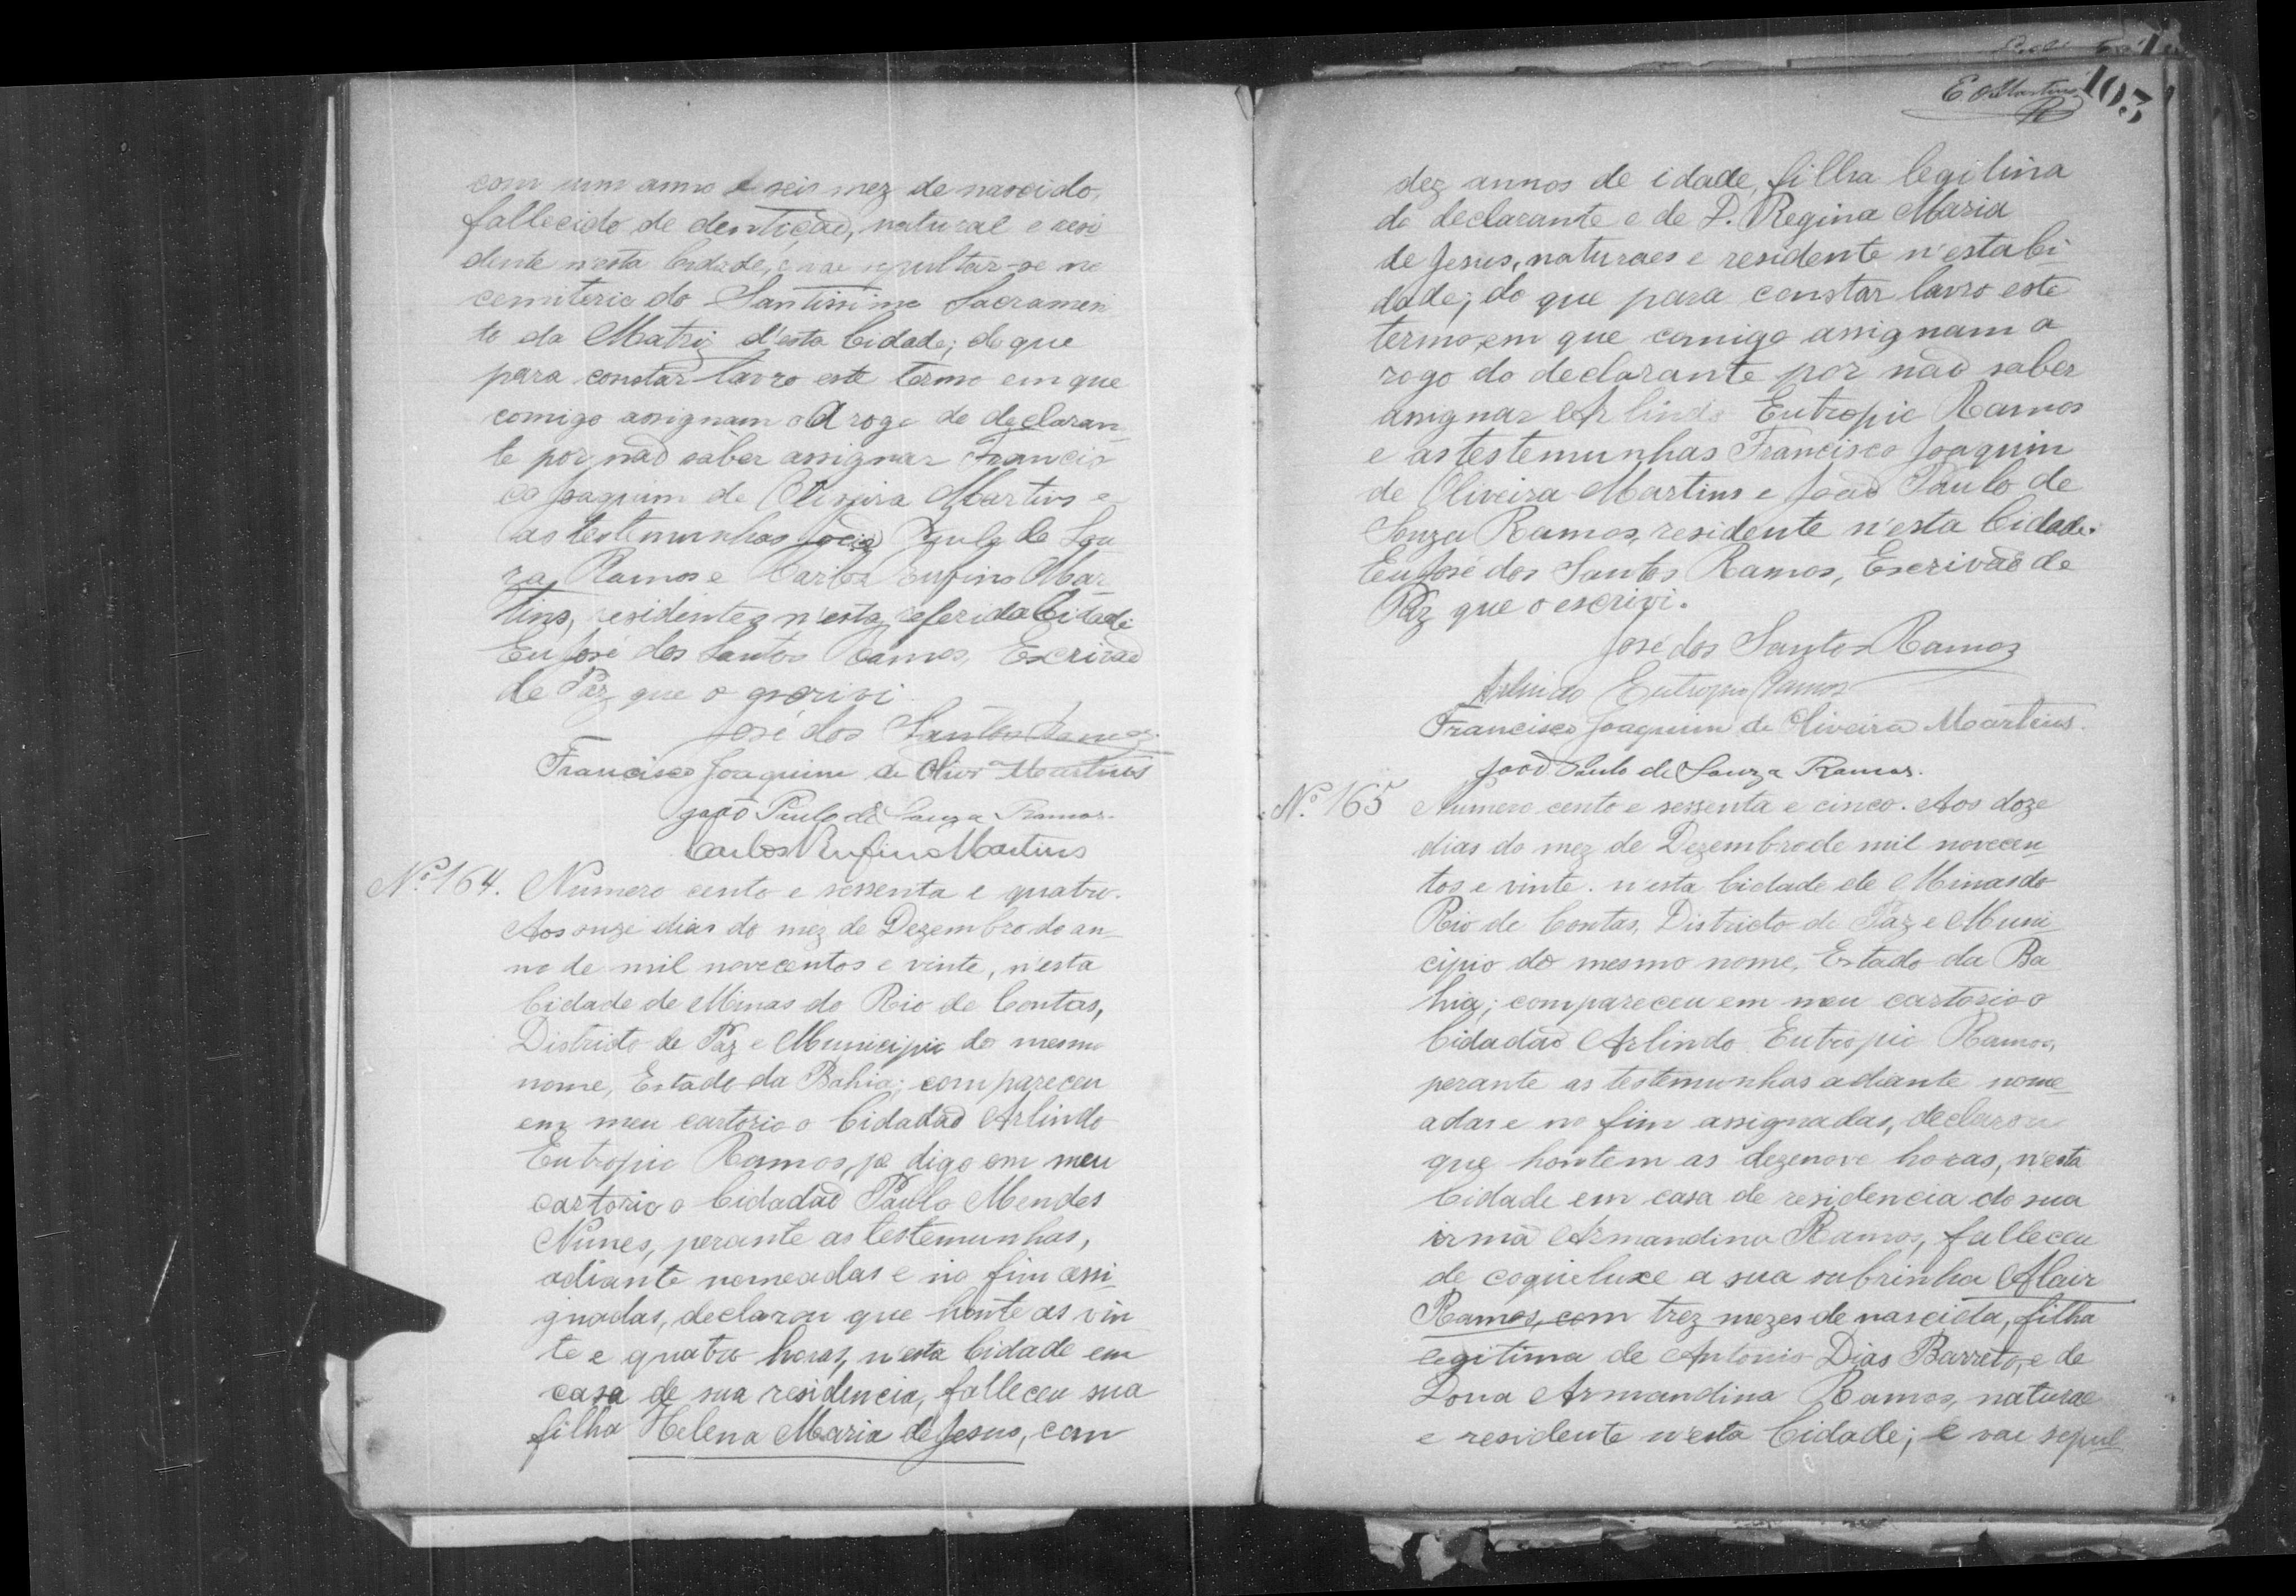 com um anno e seis mez de nascido,
fallecido de dentição, natural e resi
dente n'esta Cidade, e vae sepultar-se no
cemiterio do Santissimo Sacramen
to da Matriz d'esta Cidade; do que
para constar lavro este termo em que
comigo assignam o A rogo do declaran_
te por não saber assignar Francis
co Joaquim de Oliveira Martins e
as testemunhas João Paulo de Sou
za Ramos e Carlos Rufino Mar
tins, residentes n'esta referida Cidade
Eu José dos Santos Ramos, Escrivão
de Paz que o escrivi
José dos Santos Ramos
Francisco Joaquim de Olivª Martins
João Paulo de Souza Ramos.
Carlos Rufino Martins
Nº 164. Numero cento e sessenta e quatro.
Aos onze dias do mez de Dezembro do an_
no de mil novecentos e vinte, n'esta
Cidade de Minas do Rio de Contas,
Districto de Paz e Municipio do mesmo
nome, Estado da Bahia; compareceu
em meu cartorio o Cidadão Arlindo
Eutropio Ramos, pe digo em meu
cartorio o Cidadão Paulo Mendes
Nunes, perante as testemunhas,
adiante nomeadas e no fim assi
gnadas, declarou que honte as vin
te e quatro horas, n'esta Cidade em
casa de sua residencia, falleceu sua
filha Helena Maria de Jesus, com
E. O Martins
103
dez annos de idade, filha legitima
do declarante e de D. Regina Maria
de Jesus, naturaes e residente n'esta Ci
dade; do que para constar lavro este
termo em que comigo assignam a
rogo do declarante por não saber
assignar Arlindo Eutropio Ramos
e as testemunhas Francisco Joaquim
de Oliveira Martins e João Paulo de
Souza Ramos, residente n'esta Cidade.
Eu José dos Santos Ramos, Escrivão de
Paz que o escrivi.
José dos Santos Ramos
Arlindo Eutropio Ramos
Francisco Joaquim de Oliveira Martins.
João Paulo de Souza Ramos.
Nº 165 Numero cento e sessenta e cinco. Aos doze
dias do mez de Dezembro de mil novecen_
tos e vinte. n'esta Cidade de Minas do
Rio de Contas, Districto de Paz e Muni_
cipio do mesmo nome, Estado da Ba
hia; compareceu em meu cartorio o
Cidadão Arlindo Eutropio Ramos,
perante as testemunhas adiante nome_
adas e no fim assignadas, declarou
que hontem as dezenove horas, n'esta
Cidade em casa de residencia do sua
irmã Armandina Ramos, falleceu
de coqueluxe a sua subrinha Alair
Ramos, com trez mezes de nascida, filha
legitima de Antonio Dias Barreto, e de
Dona Armandina Ramos, naturae
e residente n'esta Cidade; e vae sepul_